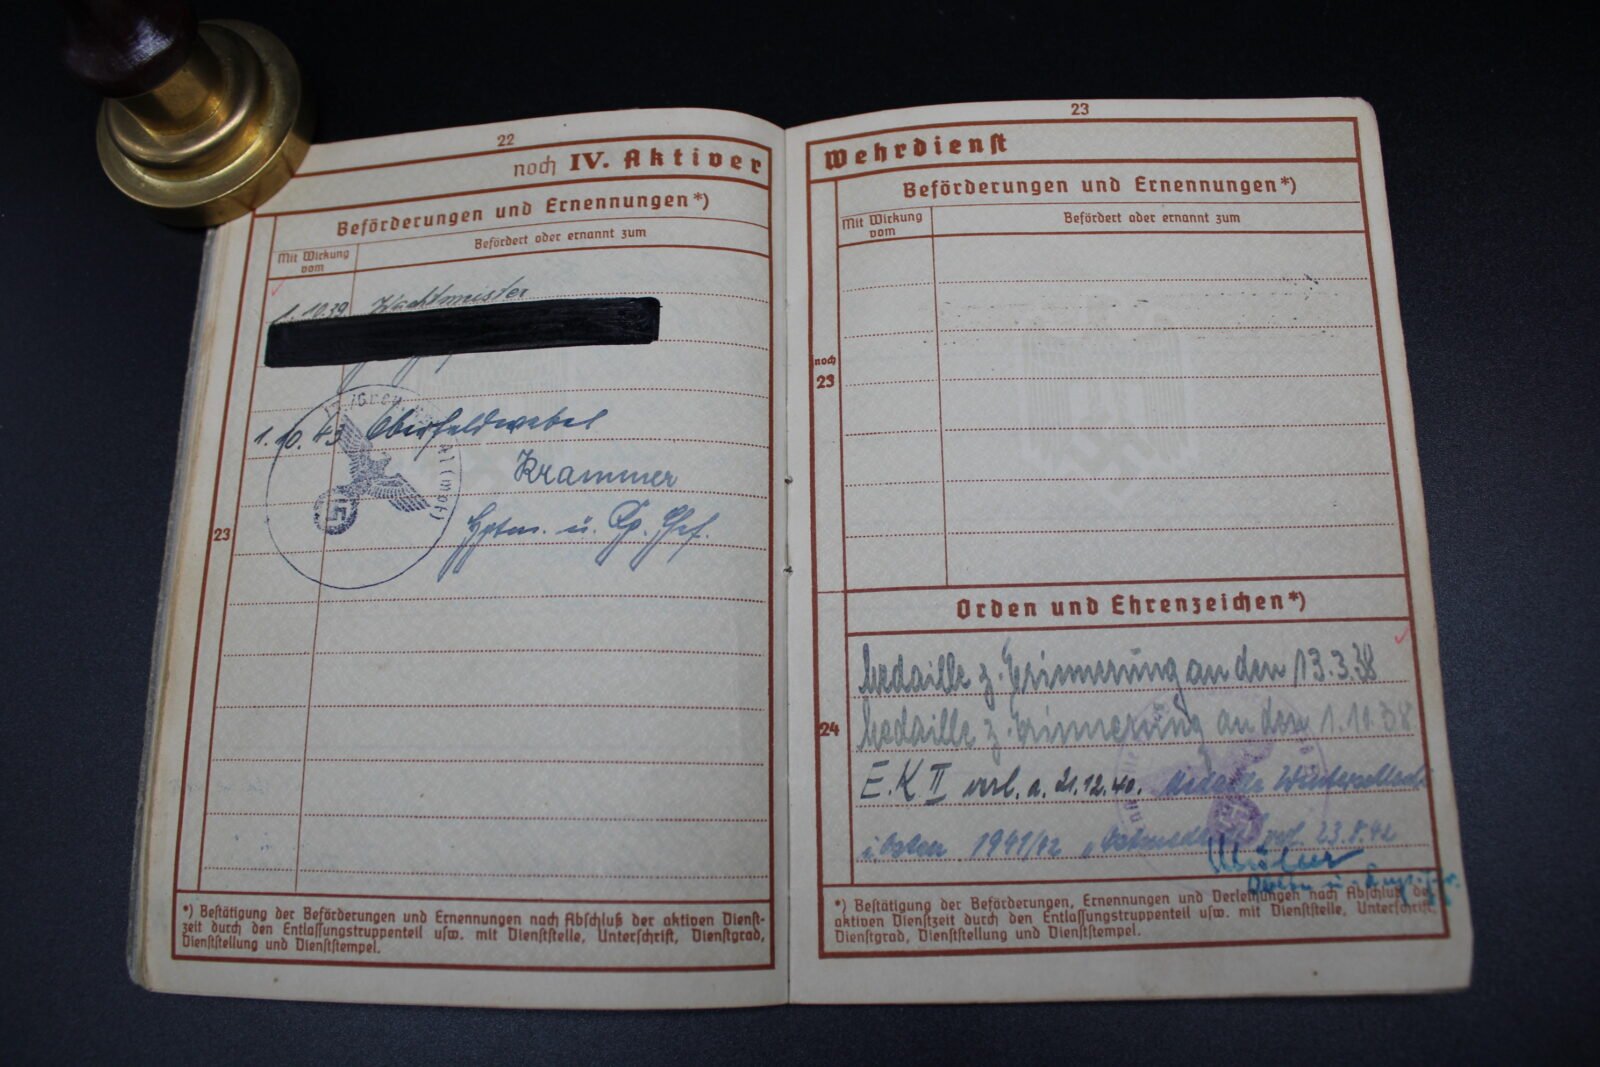 22
noch IV. Aktiver
Beförderungen und Ernennungen*)
Mit Wirkung vom
Befördert oder ernannt zum
1. 10.39 Wachtmeister
1. 10. 43 Oberfeldwebel
Krammer
Hptm. u. Kp. Chef.
23
*) Bestätigung der Beförderungen und Ernennungen nach Abschluß der aktiven Dienst-
zeit durch den Entlassungstruppenteil usw. mit Dienststelle, Unterschrift, Dienstgrad,
Dienststellung und Dienststempel.
23
Wehrdienst
Beförderungen und Ernennungen*)
Mit Wirkung vom
Befördert oder ernannt zum
noch
23
Orden und Ehrenzeichen*)
Medaille z. Erinnerung an den 13.3.38
Medaille z. Erinnerung an den 1.10.38
24
E.K II verl. a. 21.12.40. Medaille Winterschlacht
i. Osten 1941/42 verl. 23.8.42
*) Bestätigung der Beförderungen, Ernennungen und Verleihungen nach Abschluß der
aktiven Dienstzeit durch den Entlassungstruppenteil usw. mit Dienststelle, Unterschrift,
Dienstgrad, Dienststellung und Dienststempel.